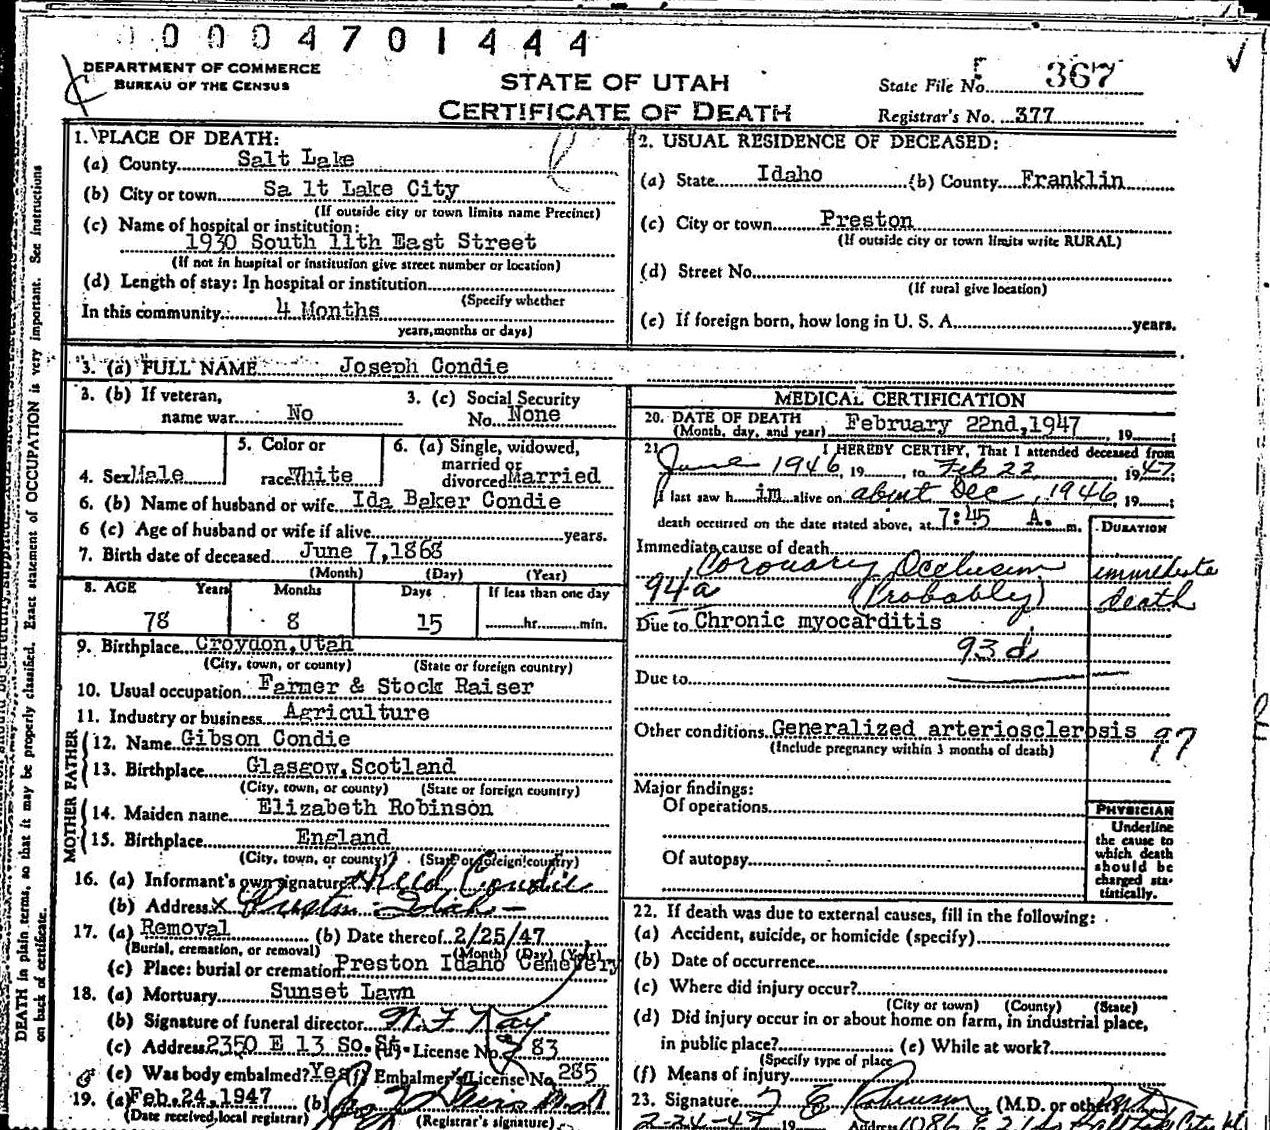 0 0 0 0 4 7 0 1 4 4 4
DEPARTMENT OF COMMERCE
BUREAU OF THE CENSUS
STATE OF UTAH
CERTIFICATE OF DEATH
State File No. 367
Registrar's No. 377
1. PLACE OF DEATH:
(a) County Salt Lake
(b) City or town Sa lt Lake City
(If outside city or town limits name Precinct)
(c) Name of hospital or institution:
1930 South 11th East Street
(If not in hospital or institution give street number or location)
(d) Length of stay: In hospital or institution
(Specify whether
In this community 4 Months
years, months or days)
2. USUAL RESIDENCE OF DECEASED:
(a) State Idaho (b) County Franklin
(c) City or town Preston
(If outside city or town limits write RURAL)
(d) Street No.
(If rural give location)
(e) If foreign born, how long in U. S. A. years.
3. (a) FULL NAME Joseph Condie
3. (b) If veteran, name war No
3. (c) Social Security No. None
4. Sex Male
5. Color or race White
6. (a) Single, widowed, married or divorced Married
6. (b) Name of husband or wife Ida Baker Condie
6 (c) Age of husband or wife if alive years.
7. Birth date of deceased June 7,1868
(Month) (Day) (Year)
8. AGE Years Months Days If less than one day
78 8 15 hr. min.
9. Birthplace Croydon,Utah
(City, town, or county) (State or foreign country)
10. Usual occupation Farmer & Stock Raiser
11. Industry or business Agriculture
FATHER
12. Name Gibson Condie
13. Birthplace Glasgow,Scotland
(City, town, or county) (State or foreign country)
MOTHER
14. Maiden name Elizabeth Robinson
15. Birthplace England
(City, town, or county) (State or foreign country)
16. (a) Informant's own signature x Reed Condie
(b) Address x Preston Idaho
17. (a) Removal (b) Date thereof 2/25/47
(Burial, cremation, or removal) (Month) (Day) (Year)
(c) Place: burial or cremation Preston Idaho Cemetery
18. (a) Mortuary Sunset Lawn
(b) Signature of funeral director
(c) Address 2350 E 13 So. St. License No. 283
(e) Was body embalmed? Yes (f) Embalmer's License No. 285
19. (a) Feb. 24, 1947 (b)
(Date received local registrar) (Registrar's signature)
MEDICAL CERTIFICATION
20. DATE OF DEATH February 22nd,1947 19
(Month, day, and year)
21. I HEREBY CERTIFY, That I attended deceased from
June 1946, 19 to Feb 22 1947;
I last saw h im alive on about Dec, 1946 19
death occurred on the date stated above, at 7:45 A. m.
DURATION
Immediate cause of death
Coronary Occlusion immediate
94a (Probably) death
Due to Chronic myocarditis
93d
Due to
Other conditions Generalized arteriosclerosis 97
(Include pregnancy within 3 months of death)
Major findings:
Of operations
Of autopsy
PHYSICIAN
Underline
the cause to
which death
should be
charged sta-
tistically.
22. If death was due to external causes, fill in the following:
(a) Accident, suicide, or homicide (specify)
(b) Date of occurrence
(c) Where did injury occur?
(City or town) (County) (State)
(d) Did injury occur in or about home on farm, in industrial place,
in public place? (e) While at work?
(Specify type of place
(f) Means of injury
23. Signature (M.D. or other)
2-24-47 19 Address
DEATH in plain terms, so that it may be properly classified. Exact statement of OCCUPATION is very important. See instructions
on back of certificate.